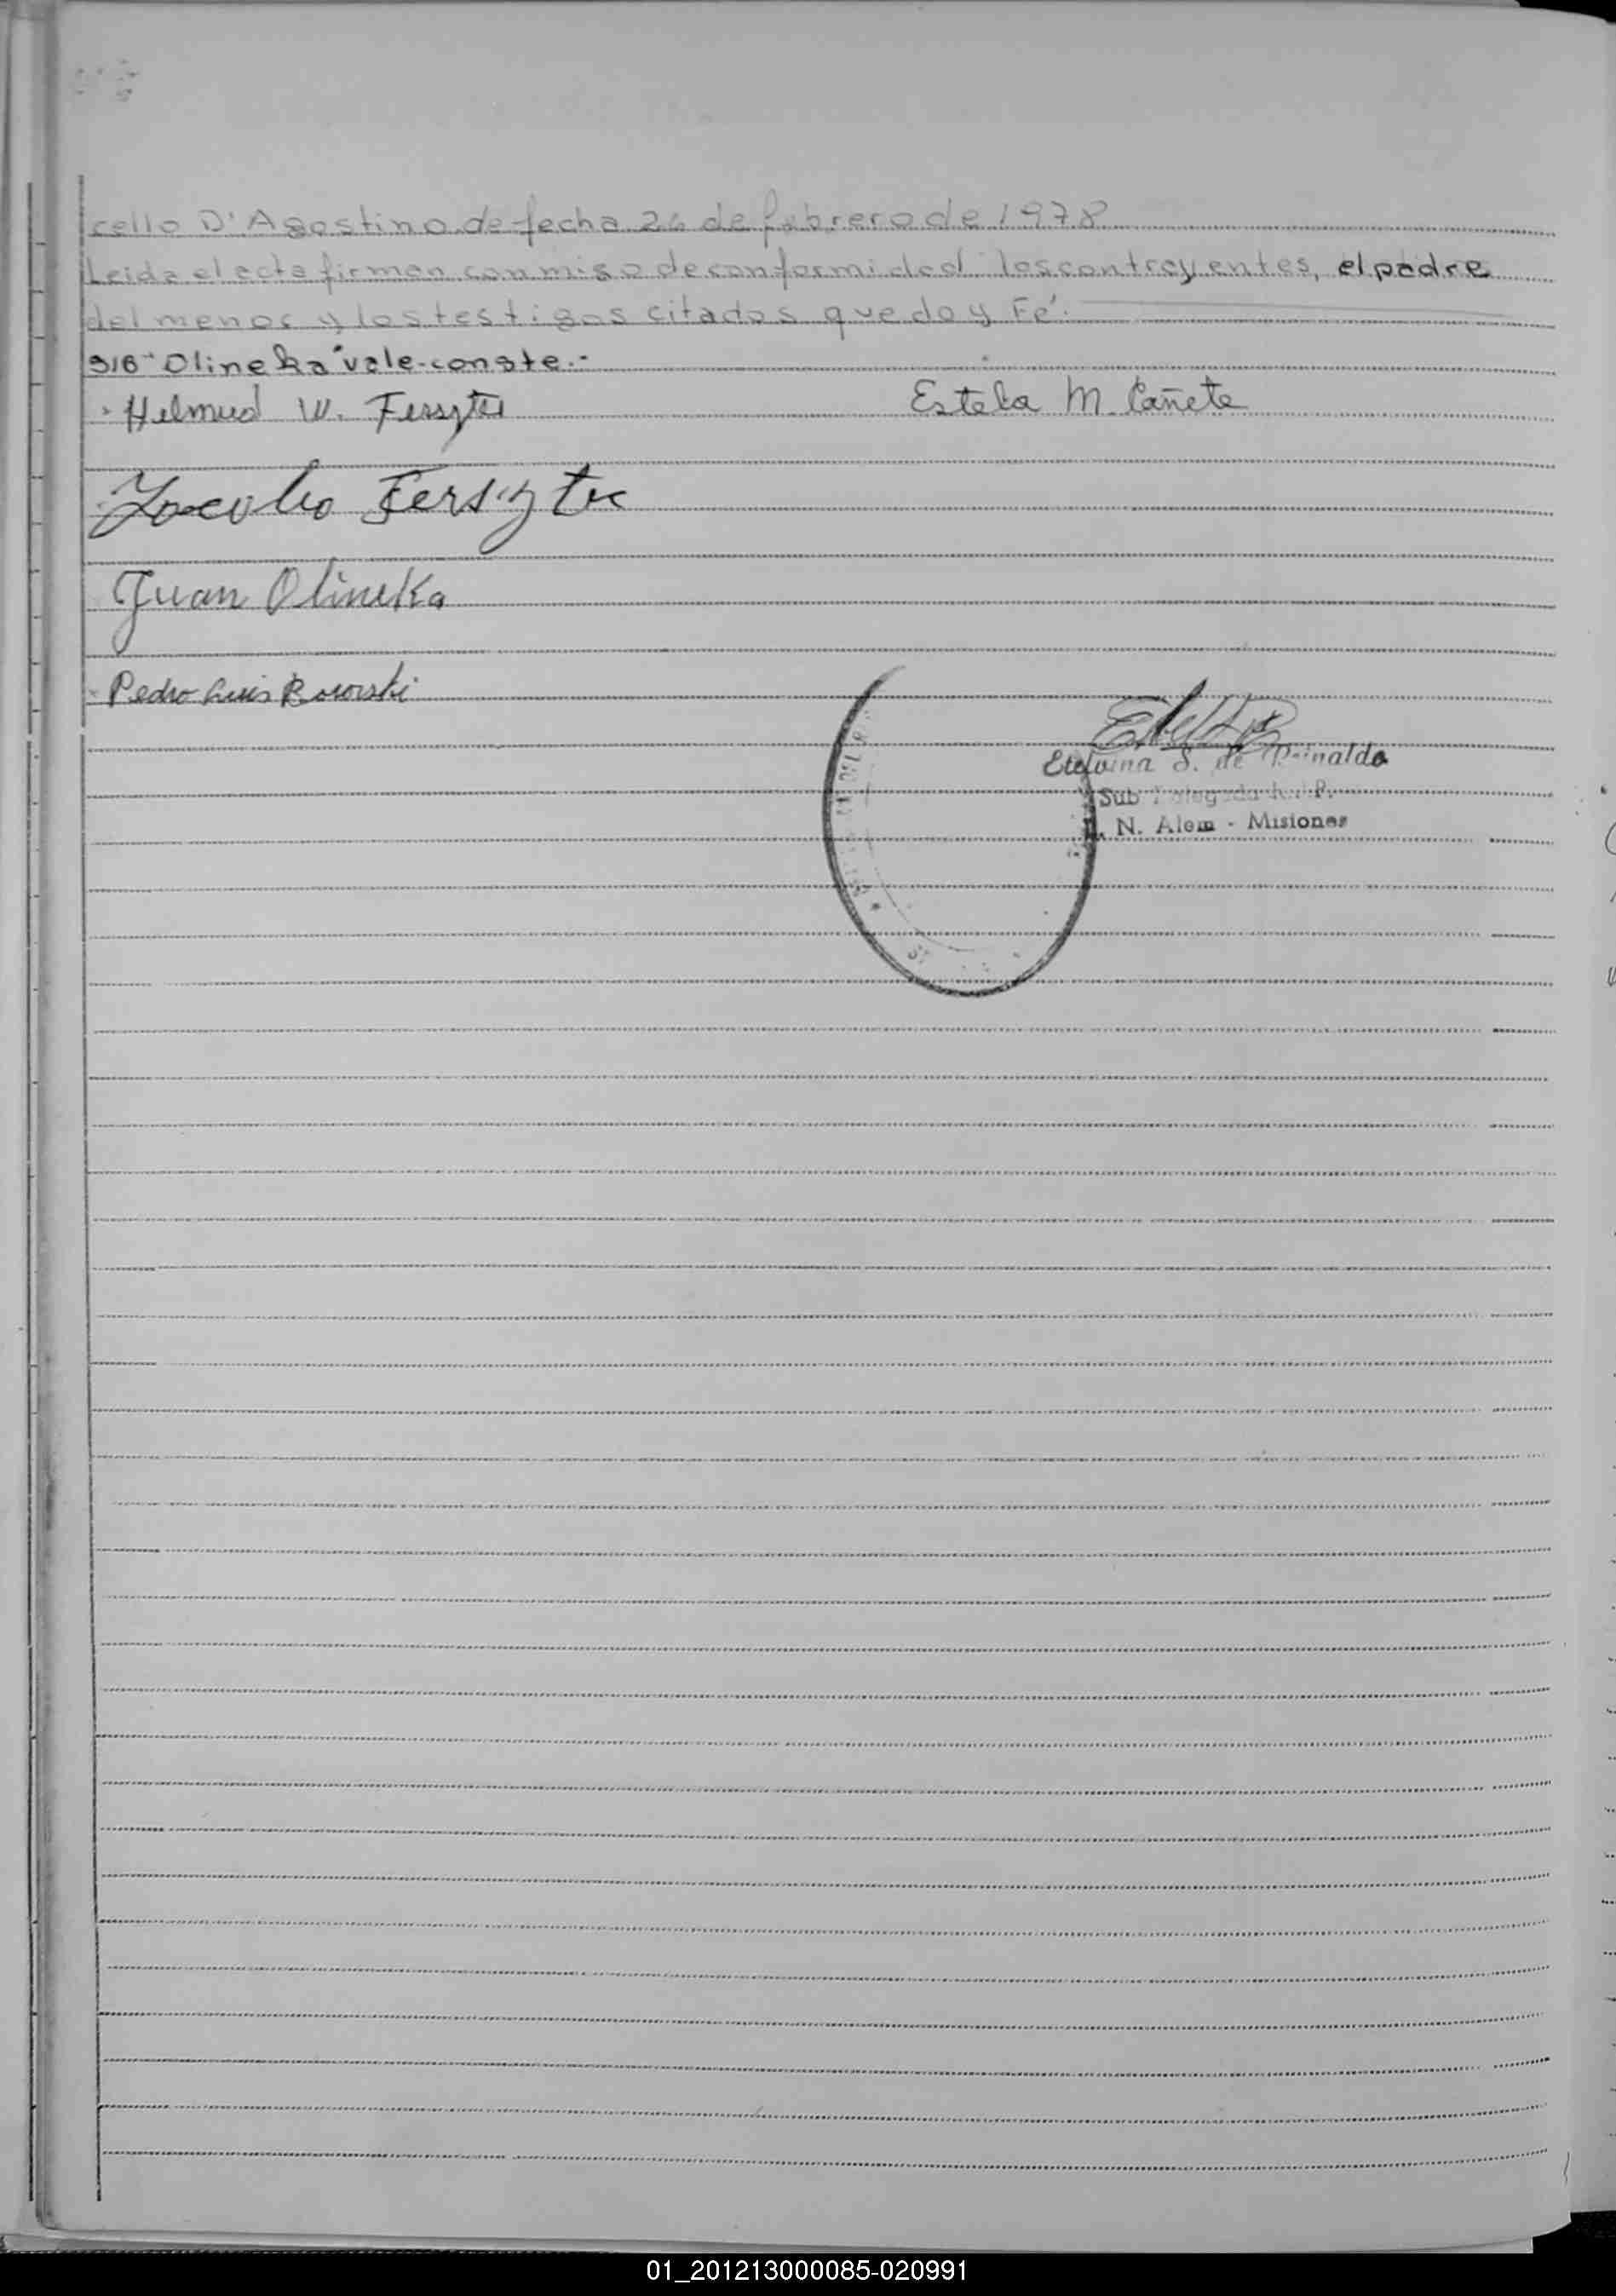 cello D'Agostino de fecha 26 de febrero de 1978
Leida el acta firman conmigo de conformidad los contrayentes, el padre
del menor y los testigos citados que doy Fé.
S/B "Olineka" vale-conste.-
Helmud W. Estela M. Cañete
Jacobo
Juan Olineka
Pedro Luis
Etelvina S. de Reinaldo
Sub Delegada R. P.
L. N. Alem - Misiones
01_201213000085-020991